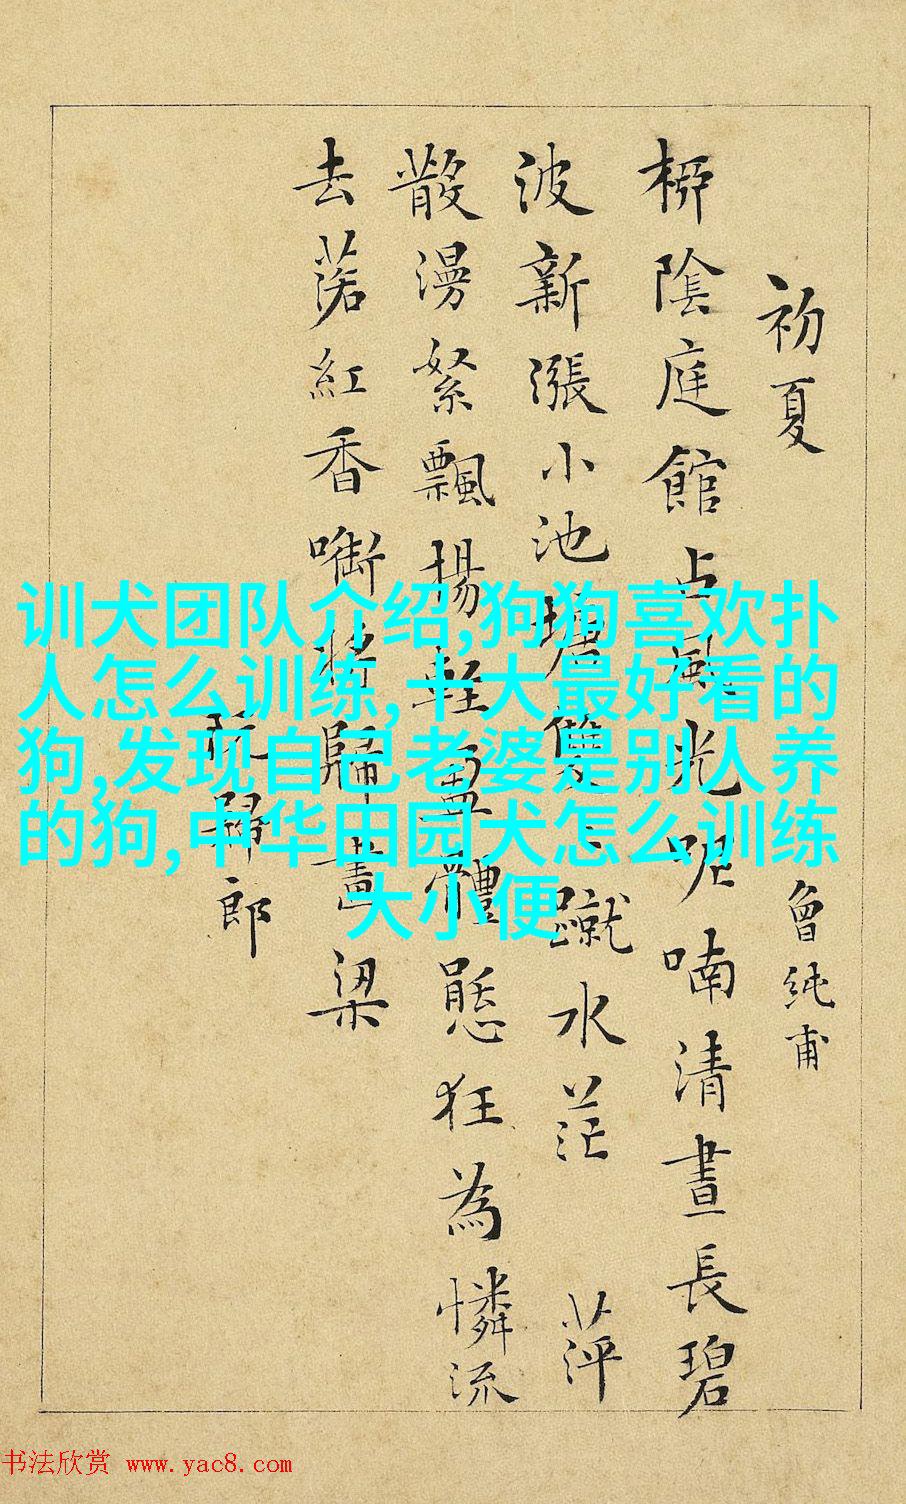 初夏 曾純甫
柳陰庭館占風光呢喃清晝長碧
波新漲小池塘雙〻蹴水茫 萍
散漫絮飄揚輕盈體態狂為憐流
去落紅香啣將歸畫梁
阮歸郎
训犬团队介绍,狗狗喜欢扑
人怎么训练,十大最好看的
狗,发现自己老婆是别人养
的狗,中华田园犬怎么训练
大小便
书法欣赏 www.yac8.com